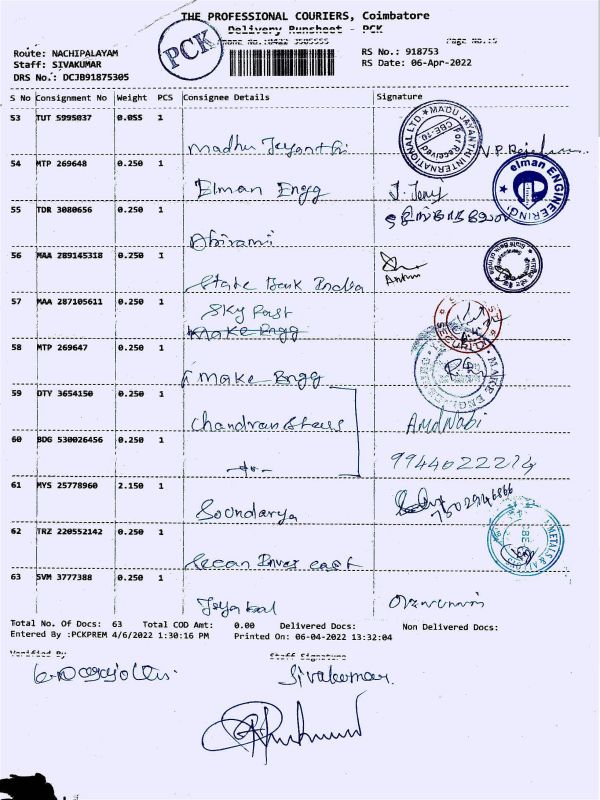 THE PROFESSIONAL COURIERS, Coimbatore
Delivery Runsheet - PCK
Phone No.:0422 3505555 Page No.:5
Route: NACHIPALAYAM RS No.: 918753
Staff: SIVAKUMAR RS Date: 06-Apr-2022
DRS No.: DCJB91875305
PCK
S No Consignment No Weight PCS Consignee Details Signature
53 TUT 5995037 0.055 1 Madhu Jeyanthi
MADU JAYANTHI INTERNATIONAL LTD. For Received CBE-10
54 MTP 269648 0.250 1 Elman Engg J. Jeny
elman ENGINEERING
55 TDR 3080656 0.250 1 Abirami
56 MAA 289145318 0.250 1 State Bank India
State Bank of India
57 MAA 287105611 0.250 1 Sky Fast
Make Engg
SECURITY
58 MTP 269647 0.250 1 Make Engg
MAKE ENGINEERING
59 DTY 3654150 0.250 1 Chandran Steels
60 BDG 530026456 0.250 1 -do- 9944022274
61 MYS 25778960 2.150 1 Soundarya 7502946866
62 TRZ 220552142 0.250 1 cast
METALS & ALLOYS CBE
63 SVM 3777388 0.250 1
Total No. Of Docs: 63 Total COD Amt: 0.00 Delivered Docs: Non Delivered Docs:
Entered By :PCKPREM 4/6/2022 1:30:16 PM Printed On: 06-04-2022 13:32:04
Verified By Staff Signature
Sivakumar.